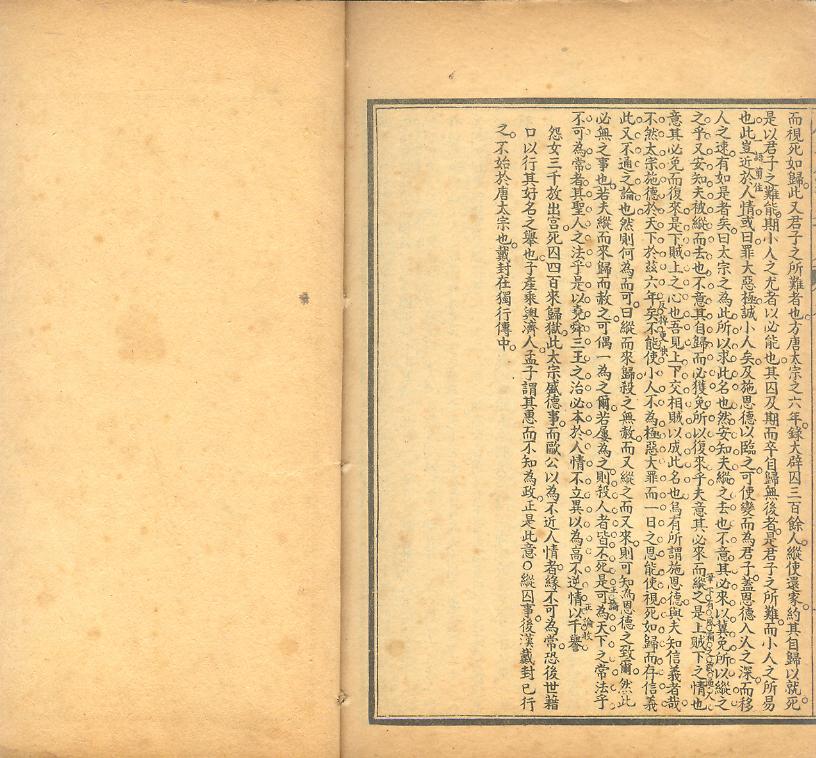 而視死如歸此又君子之所難者也方唐太宗之六年錄大辟囚三百餘人縱使還家約其自歸以就死
是以君子之難能期小人之尤者以必能也其囚及期而卒自歸無後者是君子之所難而小人之所易
也此豈近於人情或曰罪大惡極誠小人矣及施恩德以臨之可使變而為君子蓋恩德入人之深而移
人之速有如是者矣曰太宗之為此所以求此名也然安知夫縱之去也不意其必來以冀免所以縱之
之乎又安知夫被縱而去也不意其自歸而必獲免所以復來乎夫意其必來而縱之是上賊下之情也
意其必免而復來是下賊上之心也吾見上下交相賊以成此名也烏有所謂施恩德與夫知信義者哉
不然太宗施德於天下於茲六年矣不能使小人不為極惡大罪而一日之恩能使視死如歸而存信義
此又不通之論也然則何為而可曰縱而來歸殺之無赦而又縱之而又來則可知為恩德之致爾然此
必無之事也若夫縱而來歸而赦之可偶一為之爾若屢為之則殺人者皆不死是可為天下之常法乎
不可為常者其聖人之法乎是以堯舜三王之治必本於人情不立異以為高不逆情以干譽
怨女三千放出宮死囚四百來歸獄此太宗盛德事而歐公以為不近人情者緣不可為常恐後世藉
口以行其好名之舉也子產乘輿濟人孟子謂其惠而不知為政正是此意○縱囚事後漢戴封已行
之不始於唐太宗也戴封在獨行傳中